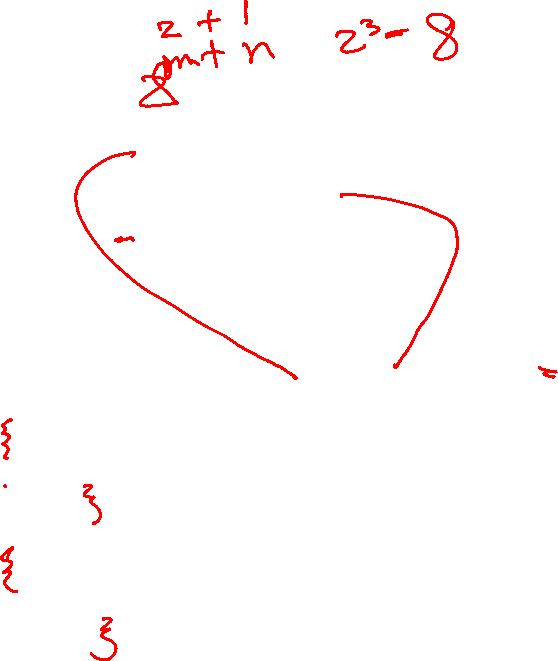 2 + 1
2^m+n 2³ - 8
-
=
{
}
{
}